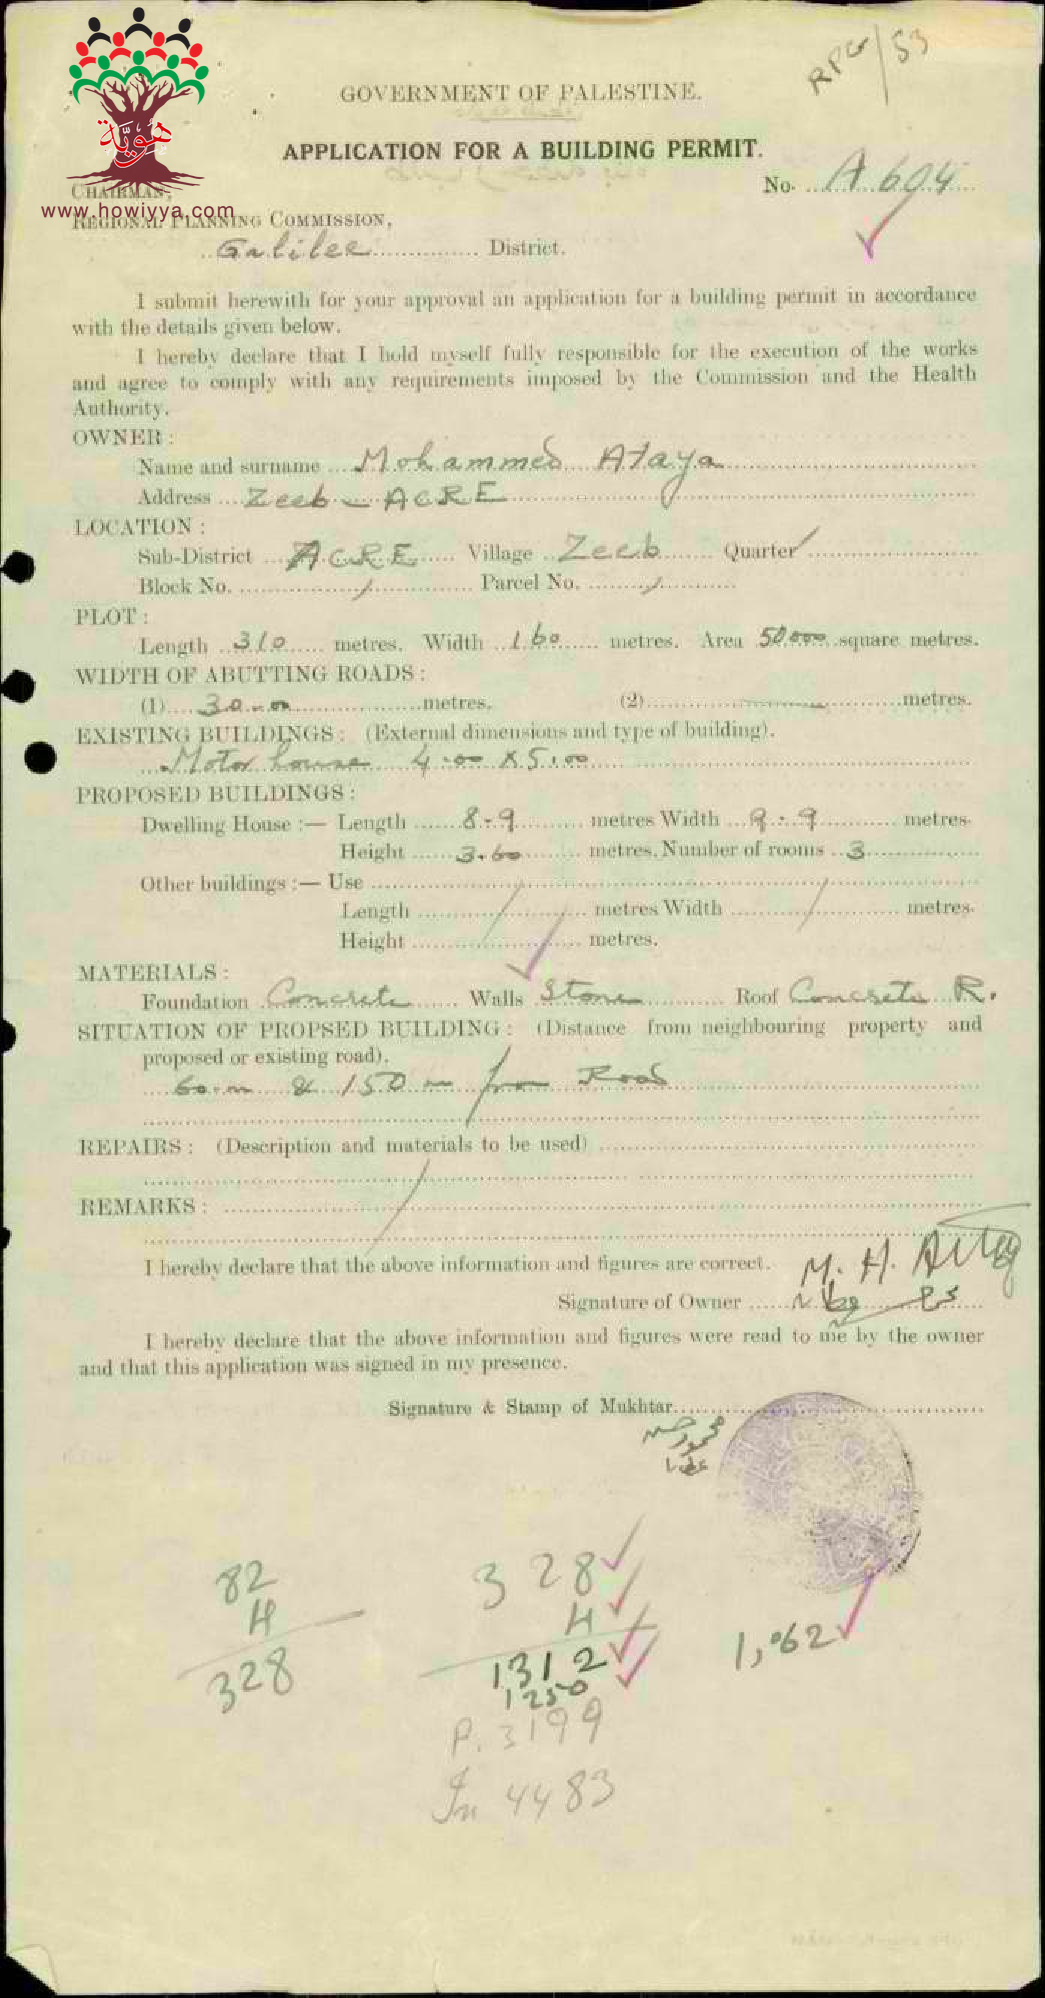 RPG/53
GOVERNMENT OF PALESTINE.
APPLICATION FOR A BUILDING PERMIT.
No. A 604
هوية
www.howiyya.com
CHAIRMAN,
REGIONAL PLANNING COMMISSION,
Galilee District.
I submit herewith for your approval an application for a building permit in accordance
with the details given below.
I hereby declare that I hold myself fully responsible for the execution of the works
and agree to comply with any requirements imposed by the Commission and the Health
Authority.
OWNER :
Name and surname Mohammed Ataya
Address Zeeb - ACRE
LOCATION :
Sub-District ACRE Village Zeeb Quarter
Block No. / Parcel No. /
PLOT :
Length 310 metres. Width 160 metres. Area 50,000 square metres.
WIDTH OF ABUTTING ROADS :
(1) 30.00 metres. (2) metres.
EXISTING BUILDINGS : (External dimensions and type of building).
Motor house 4.00 X 5.00
PROPOSED BUILDINGS :
Dwelling House :— Length 8.9 metres Width 9.9 metres.
Height 3.60 metres. Number of rooms 3
Other buildings :— Use
Length metres Width metres.
Height metres.
MATERIALS :
Foundation Concrete Walls Stone Roof Concrete R.
SITUATION OF PROPSED BUILDING : (Distance from neighbouring property and
proposed or existing road).
60 m & 150 m from Road
REPAIRS : (Description and materials to be used)
REMARKS :
I hereby declare that the above information and figures are correct.
M. H. Attaya
Signature of Owner
I hereby declare that the above information and figures were read to me by the owner
and that this application was signed in my presence.
Signature & Stamp of Mukhtar
82
4
328
328
4
1312
1250
1,062
P. 3199
In 4483